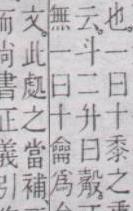 也。一曰十黍之
云。斗二升曰觳。
無一曰十龠爲
文。此處之當補
而尚書正義引